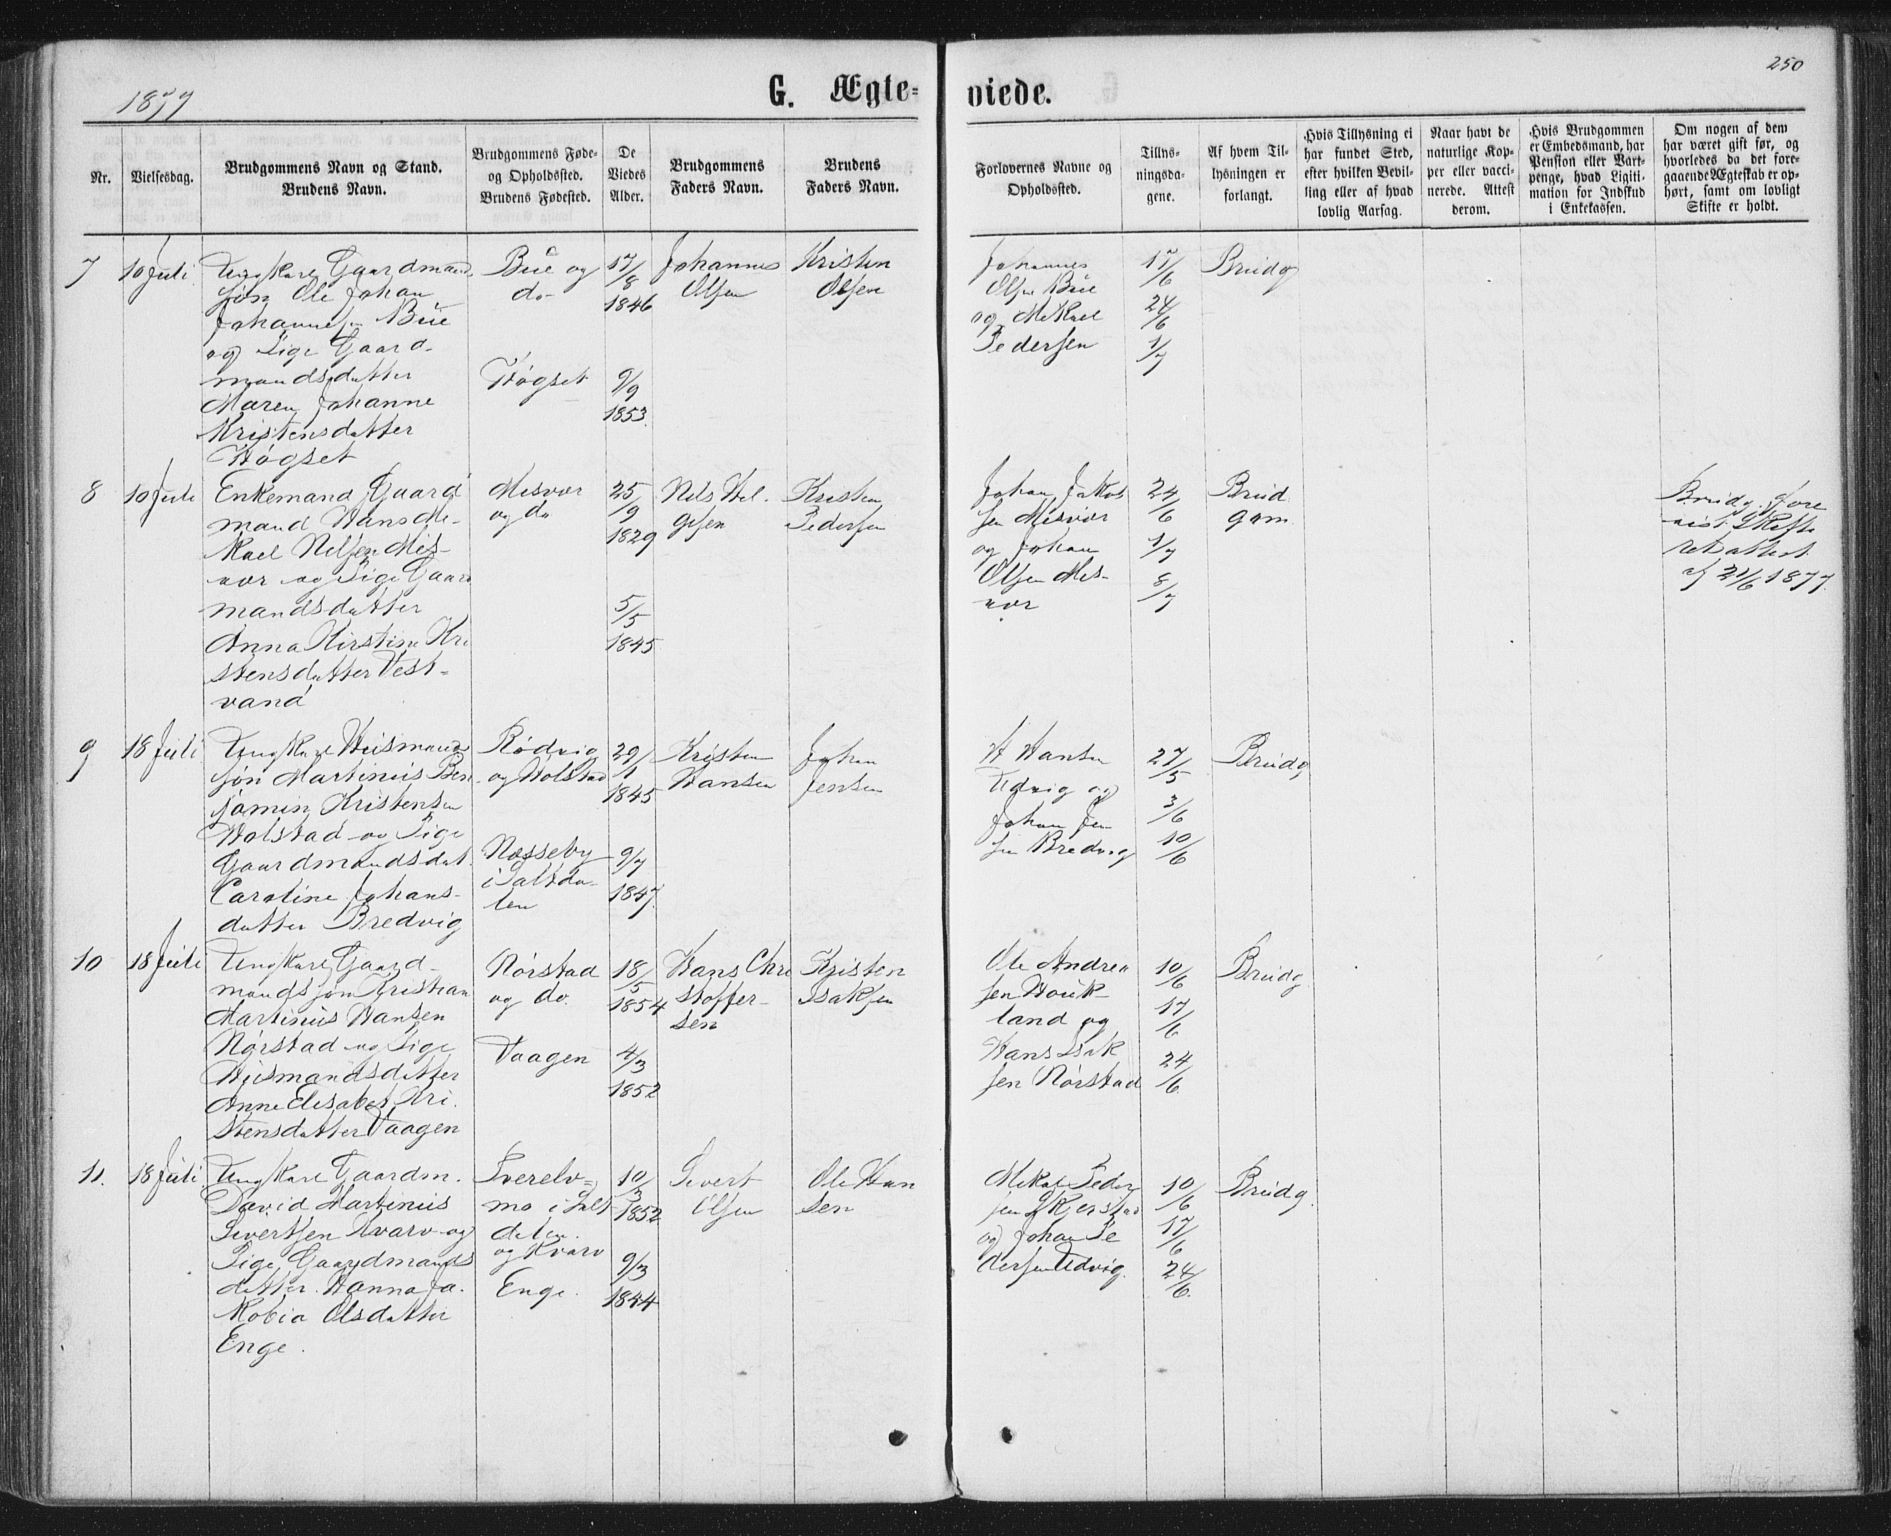 250
1877
G. Ægte- viede.
Nr.
Vielsesdag.
Brudgommens Navn og Stand.
Brudens Navn.
Brudgommens Føde-
og Opholdssted.
Brudens Fødested.
De
Viedes
Alder.
Brudgommens
Faders Navn.
Brudens
Faders Navn.
Forlovernes Navne og
Opholdssted.
Tillys-
ningsda-
gene.
Af hvem Til-
lysningen er
forlangt.
Hvis Tillysning ei
har fundet Sted,
efter hvilken Bevil-
ling eller af hvad
lovlig Aarsag.
Naar havt de
naturlige Kop-
per eller vacci-
nerede. Attest
derom.
Hvis Brudgommen
er Embedsmand, har
Pension eller Vart-
penge, hvad Ligiti-
mation for Indskud
i Enkekassen.
Om nogen af dem
har været gift før, og
hvorledes da det fore-
gaaende Ægteskab er op-
hørt, samt om lovligt
Skifte er holdt.
7
10 Juli
Ungkarl Gaardmands
søn Ole Johan
Johannesen Bue
og Pige Gaard-
mandsdatter
Maren Johanne
Kristensdatter
Høgset
Bue og
do
Høgset
17/8
1846
9/9
1853
Johannes
Olsen
Kristen
Olsen
Johannes
Olsen Bue
og Mikael
Pedersen
17/6
24/6
1/7
Brudg
8
10 Juli
Enkemand Gaard
mand Hans Mi-
kael Nilsen Mis-
vær og Pige Gaard
mandsdatter
Anna Kirstine Kri
stensdatter Vest-
vand
Misvær
og do
25/9
1829
5/5
1845
Nils Hel-
gesen
Kristen
Pedersen
Johan Jakob
sen Misvær
og Johan
Olsen Mis-
vær
24/6
1/7
8/7
Brud
gom
Brudg. fore
vist Skifte
retsattest
af 21/6 1877
9
18 Juli
Ungkarl Husmands
søn Martinus Ben
jamin Kristensen
Holstad og Pige
Gaardmandsdat
Caroline Johans-
datter Bredvig
Rødvig
og Holstad
Næsseby
i Saltda-
len
29/1
1845
9/7
1847
Kristen
Hansen
Johan
Jensen
H Hansen
Udvig og
Johan Jen
sen Bredvig
27/5
3/6
10/6
Brudg
10
18 Juli
Ungkarl Gaard-
mandssøn Kristian
Martinus Hansen
Nørstad og Pige
Husmandsdatter
Anne Elisabet Kri
stensdatter Vaagen
Nørstad
og do.
Vaagen
18/5
1854
4/3
1852
Hans Chri
stoffer-
sen
Kristen
Isaksen
Ole Andrea
sen Houk-
land og
Hans Isak
sen Nørstad
10/6
17/6
24/6
Brudg
11.
18 Juli
Ungkarl Gaardm.
David Martinus
Sivertsen Kvarv og
Pige Gaardmands
datter Hanna Ja
kobia Olsdatter
Enge.
Sverelv-
mo i Salt
dalen
og Kvarv
Enge.
10/3
1852
9/3
1844
Sivert
Olsen
Ole Han
sen
Mikal Peder
sen Skjerstad
og Johan Pe
dersen Udvig.
10/6
17/6
24/6
Brudg.